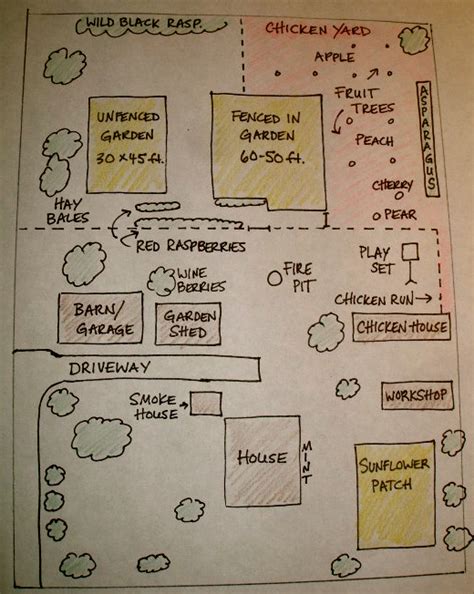 WILD BLACK RASP.
CHICKEN YARD
APPLE
FRUIT
TREES
ASPARAGUS
UNFENCED
GARDEN
30 x 45 ft.
FENCED IN
GARDEN
60-50 ft.
PEACH
CHERRY
PEAR
HAY
BALES
RED RASPBERRIES
WINE
BERRIES
FIRE
PIT
PLAY
SET
CHICKEN RUN
BARN/
GARAGE
GARDEN
SHED
CHICKEN-HOUSE
DRIVEWAY
SMOKE
HOUSE
WORKSHOP
HOUSE
MINT
SUNFLOWER
PATCH